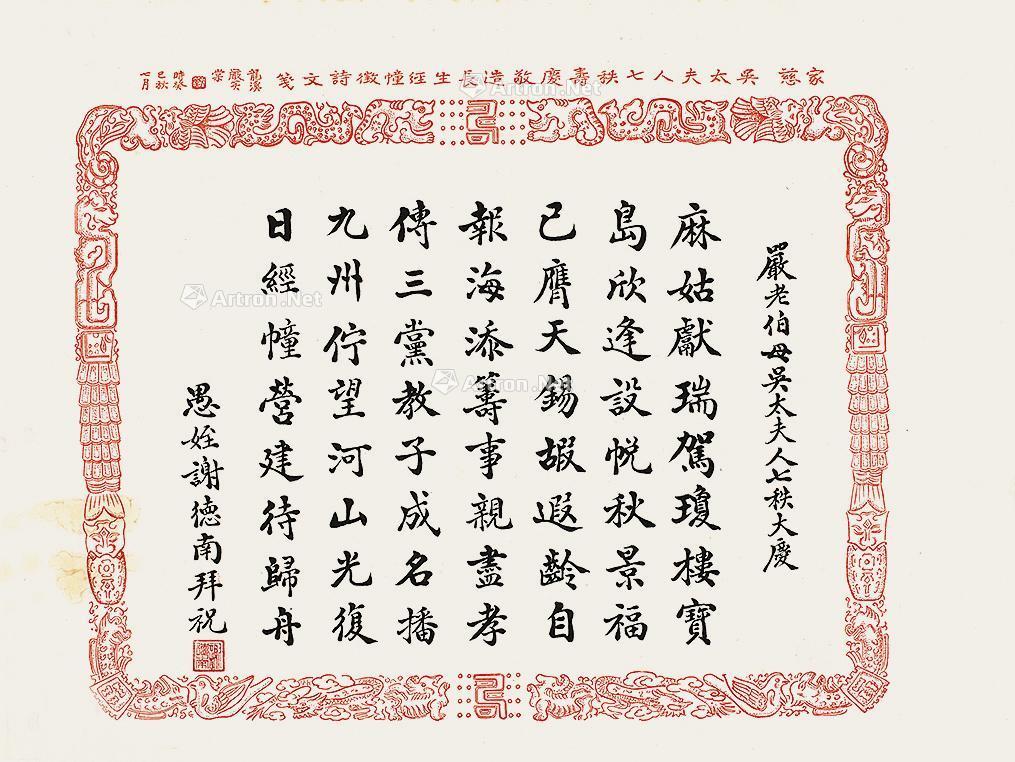 家慈吳太夫人七秩壽慶敬造長生經幢徵詩文箋
龍溪嚴笑棠
時癸巳秋八月
嚴老伯母吳太夫人七秩大慶
麻姑獻瑞駕瓊樓寶
島欣逢設帨秋景福
已膺天錫嘏遐齡自
報海添籌事親盡孝
傳三黨教子成名播
九州佇望河山光復
日經幢營建待歸舟
愚姪謝德南拜祝
Artron.Net
Artron.Net
Artron.Net
Artron.Net